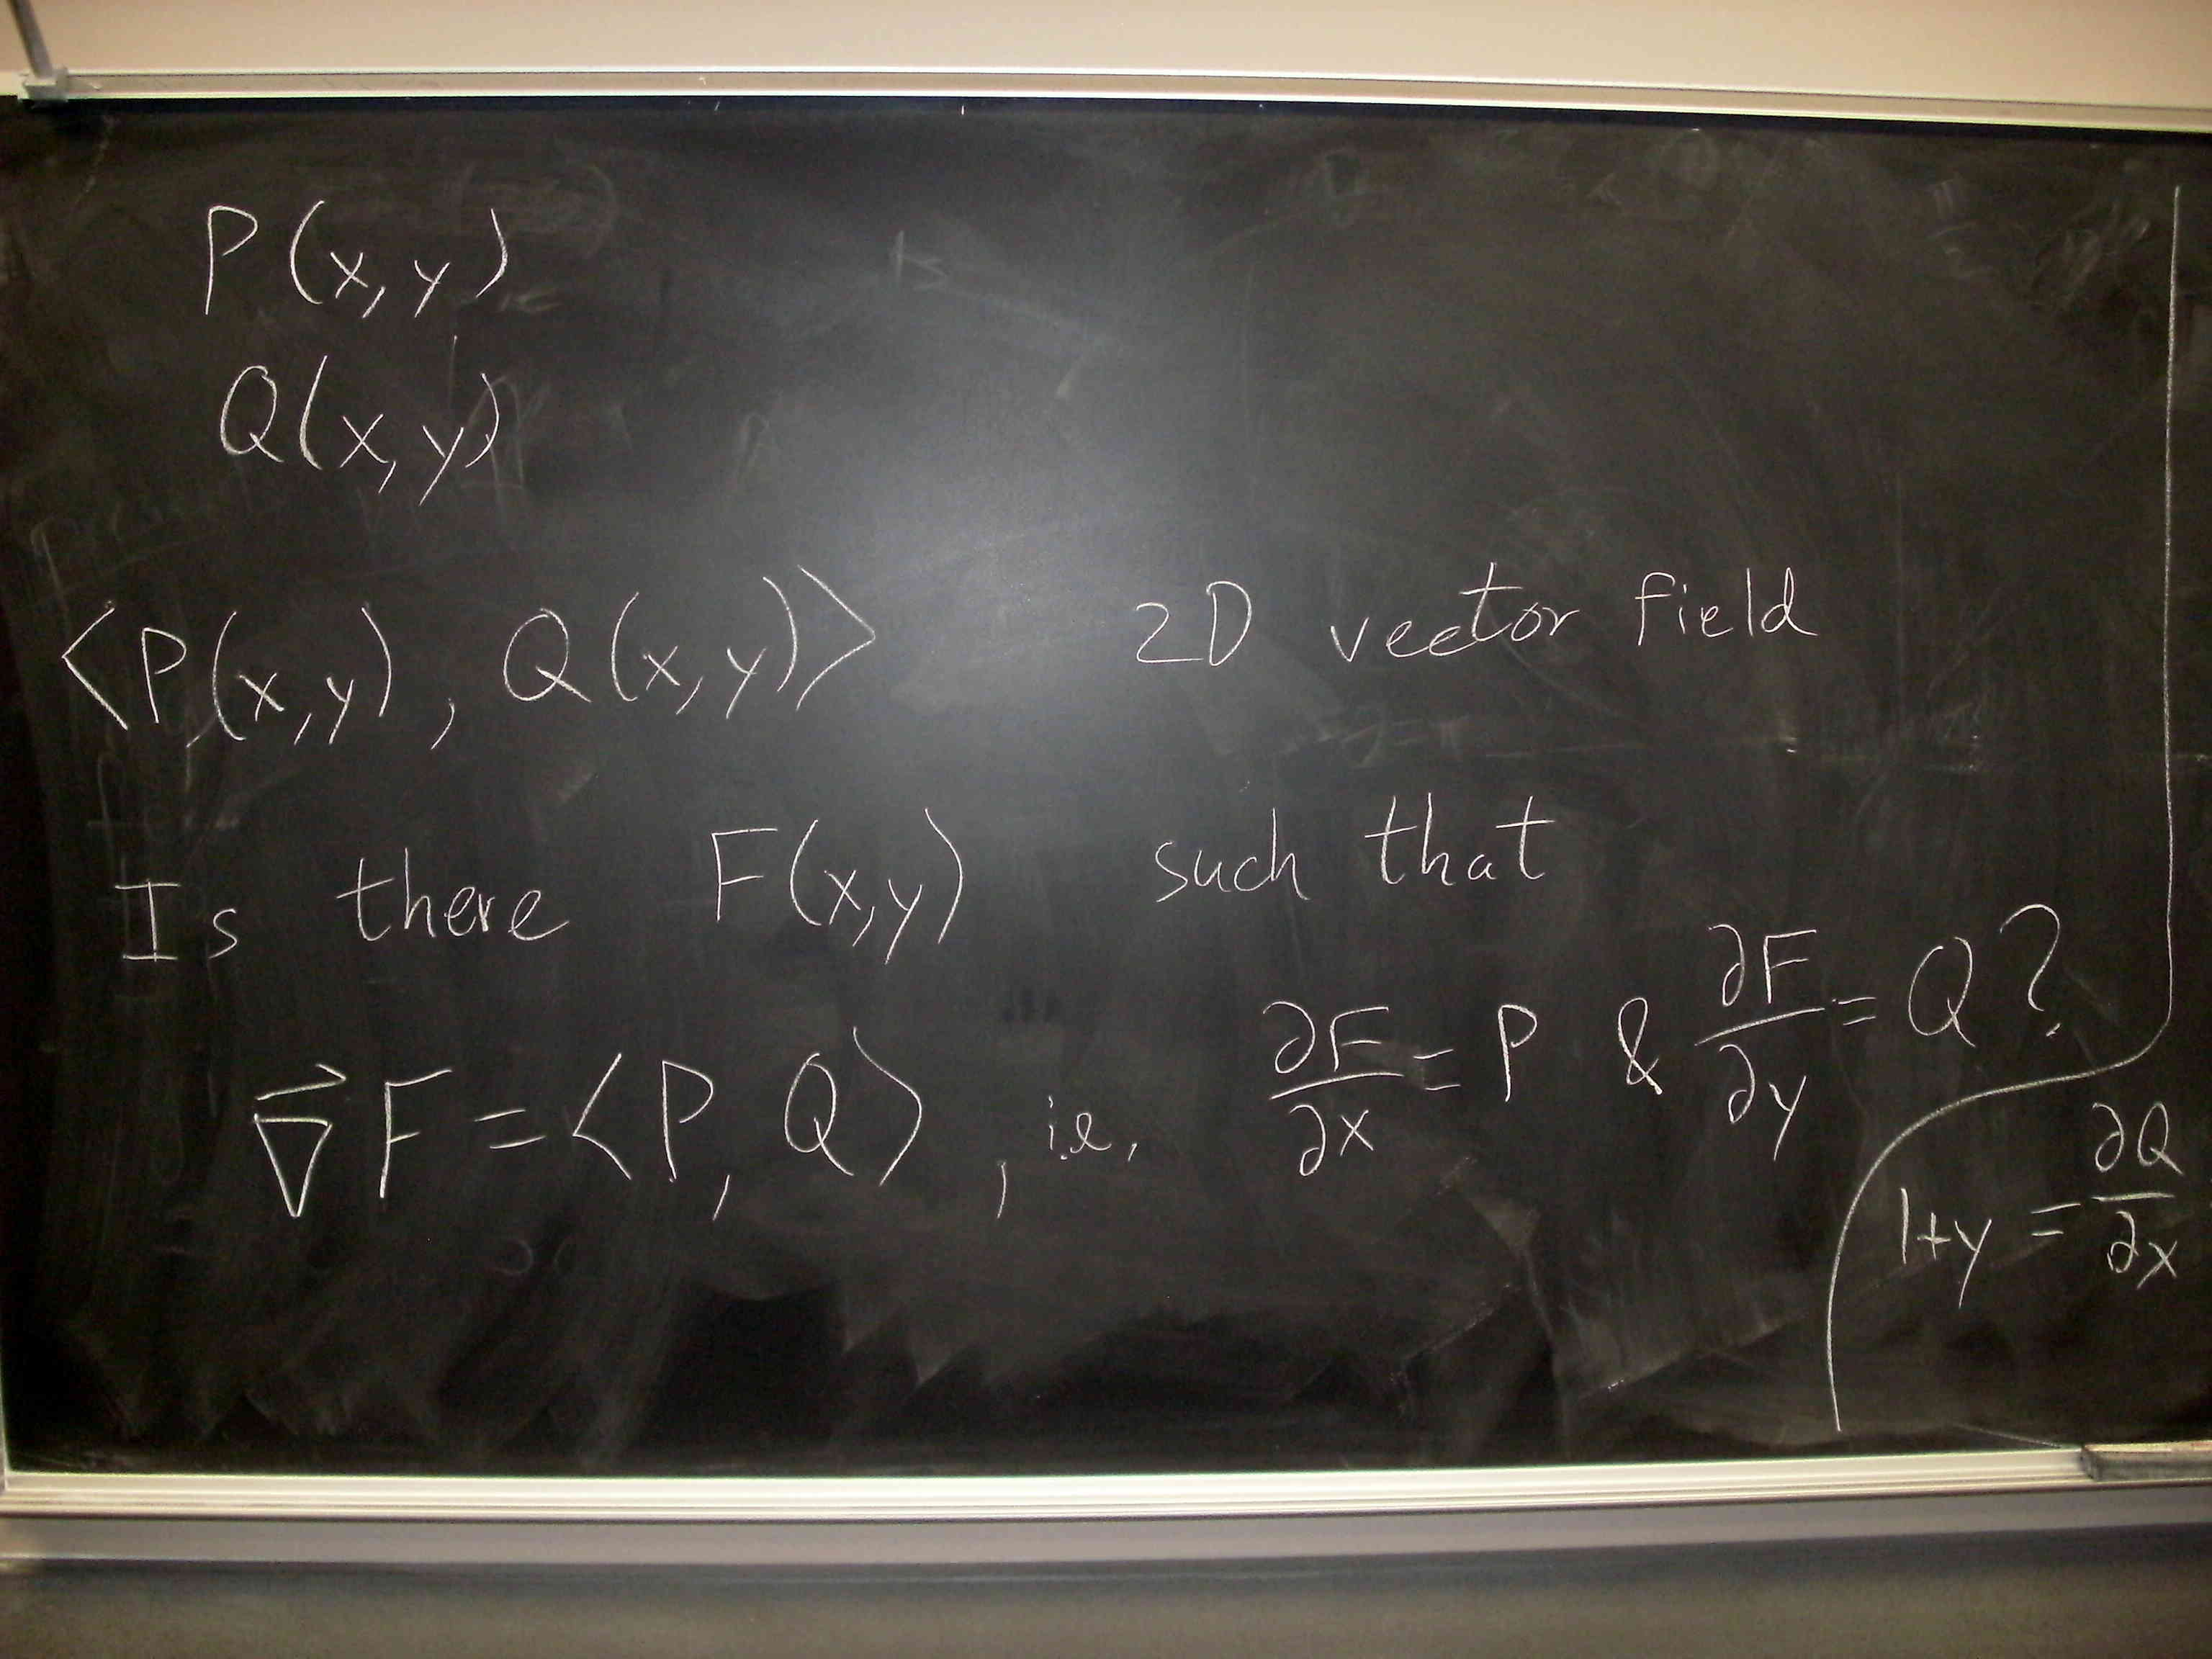 P(x,y)
Q(x,y)
<P(x,y), Q(x,y)> 2D vector field
Is there F(x,y) such that
∇⃗F = <P, Q>, i.e. ∂F/∂x = P & ∂F/∂y = Q?
1+y = ∂Q/∂x